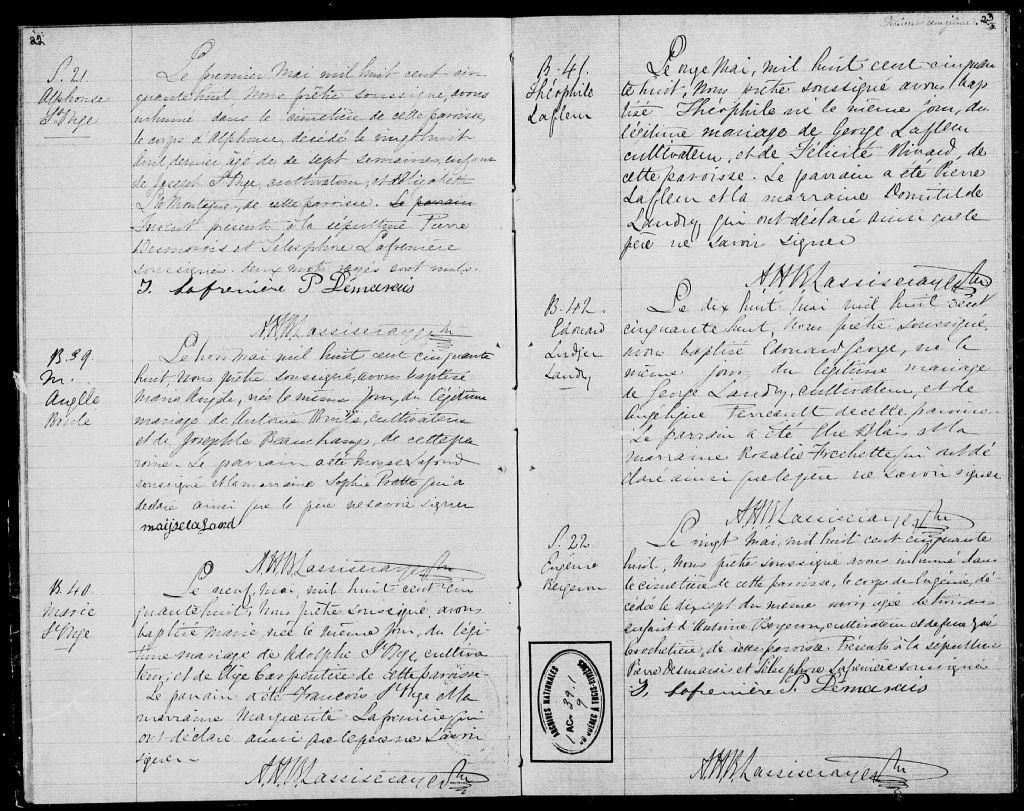 22
S. 21.
Alphonse
St Yge
Le premier Mai mil huit cent cin
quante huit, Nous prêtre soussigné, avons
inhumé dans le cimetière de cette paroisse,
le corps d'Alphonse, décédé le vingt huit
avril dernier agé de de sept semaines, enfant
de Joseph St Yge, cultivateur, et d'Elizabeth
La Montagne, de cette paroisse. Le parrain
Furent présents à la sépulture Pierre
Desmarais et Télesphore Lafrenière
soussignés. deux mots rayés sont nuls.
T. Lafrenière P Démarais
A.H.B. Lassiseraye ptre
B. 39
M.
Angèle
Le huit Mai mil huit cent cinquante
huit, Nous prêtre soussigné, avons baptisé
Marie Angèle, née le même jour, du légitime
mariage de Antoine cultivateur
et de Josephte Beauchamp, de cette pa
roisse. Le parrain a été Moyse Lafond
soussigné et la marraine Sophie Pratte qui a
déclaré ainsi que le père ne savoir signer
A.H.B. Lassiseraye ptre
B. 40
Marie
St Yge
Le neuf, Mai, mil huit cent cin
quante huit, Nous prêtre soussigné, avons
baptisé Marie née le même jour, du légi
time mariage de Adolphe St Yge, cultiva
teur, et de Carpentier de cette paroisse
Le parrain a été François St Yge et la
marraine Marguerite Lafrenière qui
ont déclaré ainsi que le père ne savoir
signer.
A.H.B. Lassiseraye ptre
23
B. 41.
Théophile
Lafleur
Le onze Mai, mil huit cent cinquan
te huit, Nous prêtre soussigné avons bap
tisé Théophile né le même jour, du
légitime mariage de George Lafleur
cultivateur, et de Félicité Rivard, de
cette paroisse. Le parrain a été Pierre
Lafleur et la marraine Domitilde
Landry qui ont déclaré ainsi que le
père ne savoir signer
A.H.B. Lassiseraye ptre
B. 42.
Edouard
Landry
Le dix huit Mai mil huit cent
cinquante huit, Nous prêtre soussigné,
avons baptisé Edouard George, né le
même jour, du légitime mariage
de George Landry, cultivateur, et de
Angélique Terreault de cette paroisse.
Le parrain a été Elie Blais et la
marraine Rosalie Frechette qui ont dé
claré ainsi que le père ne savoir signer
A.H.B. Lassiseraye ptre
S. 22
Eugénie
Bergeron
Le vingt Mai, mil huit cent cinquante
huit, Nous prêtre soussigné avons inhumé dans
le cimetière de cette paroisse, le corps de Eugénie, dé
cédée le dix sept du même mois agée de trois ans
enfant d'Antoine Bergeron, cultivateur et de feue Zoé
Brochetière, de cette paroisse. Présents à la sépulture
Pierre Desmarais et Télesphore Lafrenière soussignés
T. Lafrenière P. Démarais
A.H.B. Lassiseraye ptre
ARCHIVES NATIONALES
1 Ac. 39.1
9
DU QUÉBEC À TROIS-RIVIÈRES